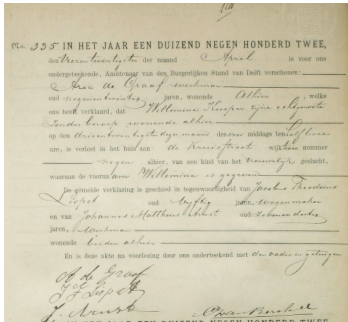 No. 335 IN HET JAAR EEN DUIZEND NEGEN HONDERD TWEE,
den vierentwintigsten der maand April is voor ons
ondergeteekende, Ambtenaar van den Burgerlijken Stand van Delft verschenen:
Arie de Graaf werkman
oud negenentwintig jaren, wonende Alhier, welke
ons heeft verklaard, dat Willemina Kuijper zijne echtgenoote
zonder beroep, wonende alhier
op den drieentwintigsten dezer maand des voor middags ten half twee
ure, is verlost in het huis aan de Kruisstraat wijk nummer
negen alhier, van een kind van het vrouwelijk geslacht,
waaraan de voornaam Willemina is gegeven
De gemelde verklaring is geschied in tegenwoordigheid van Jacobus Theodorus
oud vijftig jaren, wagenmaker
en van Johannes Mattheus Arnst oud
jaren, werkman
wonende beiden alhier
En is deze akte na voorlezing door ons onderteekend met de vader en getuigen
A de Graaf
J. Arnst